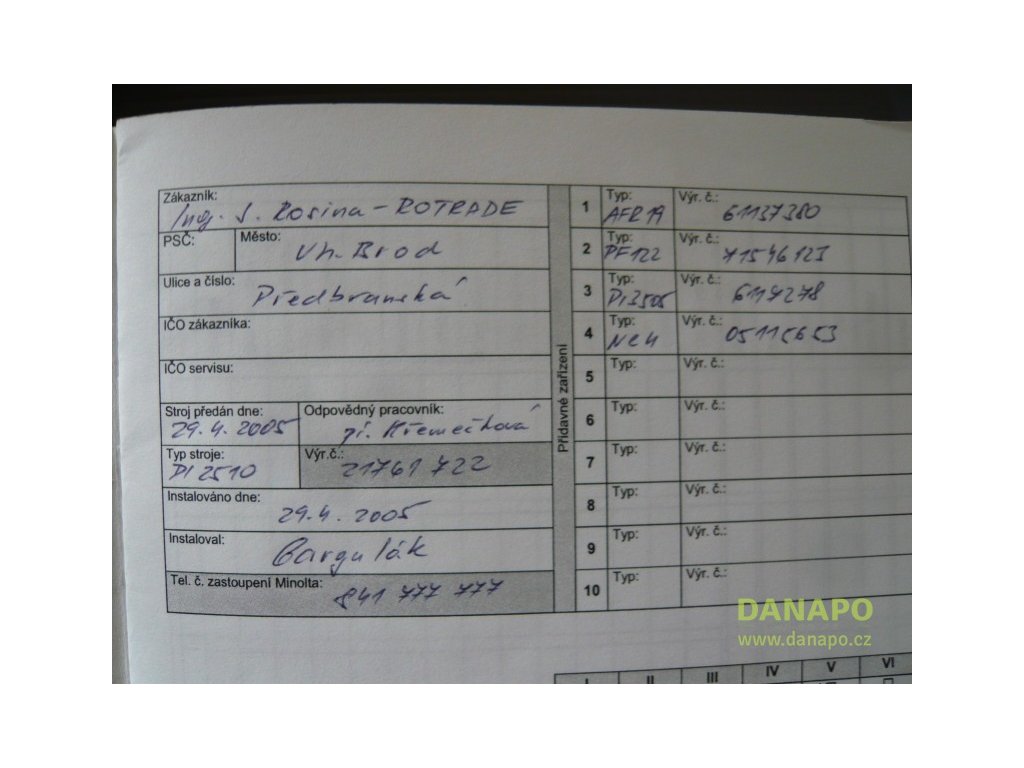 Zákazník:
Ing. J. Rosina - ROTRADE
PSČ: Město:
Uh. Brod
Ulice a číslo:
Předbranská
IČO zákazníka:
IČO servisu:
Stroj předán dne: Odpovědný pracovník:
29.4.2005 pí. Křemečková
Typ stroje: Výr.č.:
DI 2510 21761 722
Instalováno dne:
29.4.2005
Instaloval:
Bargulák
Tel. č. zastoupení Minolta:
841 777 777
Přídavné zařízení
1 Typ: AFR 19 Výr. č.: 61137380
2 Typ: PF122 Výr. č.: 71546123
3 Typ: DI3505 Výr. č.: 6114278
4 Typ: NC4 Výr. č.: 05115653
5 Typ: Výr. č.:
6 Typ: Výr. č.:
7 Typ: Výr. č.:
8 Typ: Výr. č.:
9 Typ: Výr. č.:
10 Typ: Výr. č.:
DANAPO
www.danapo.cz
I II III IV V VI